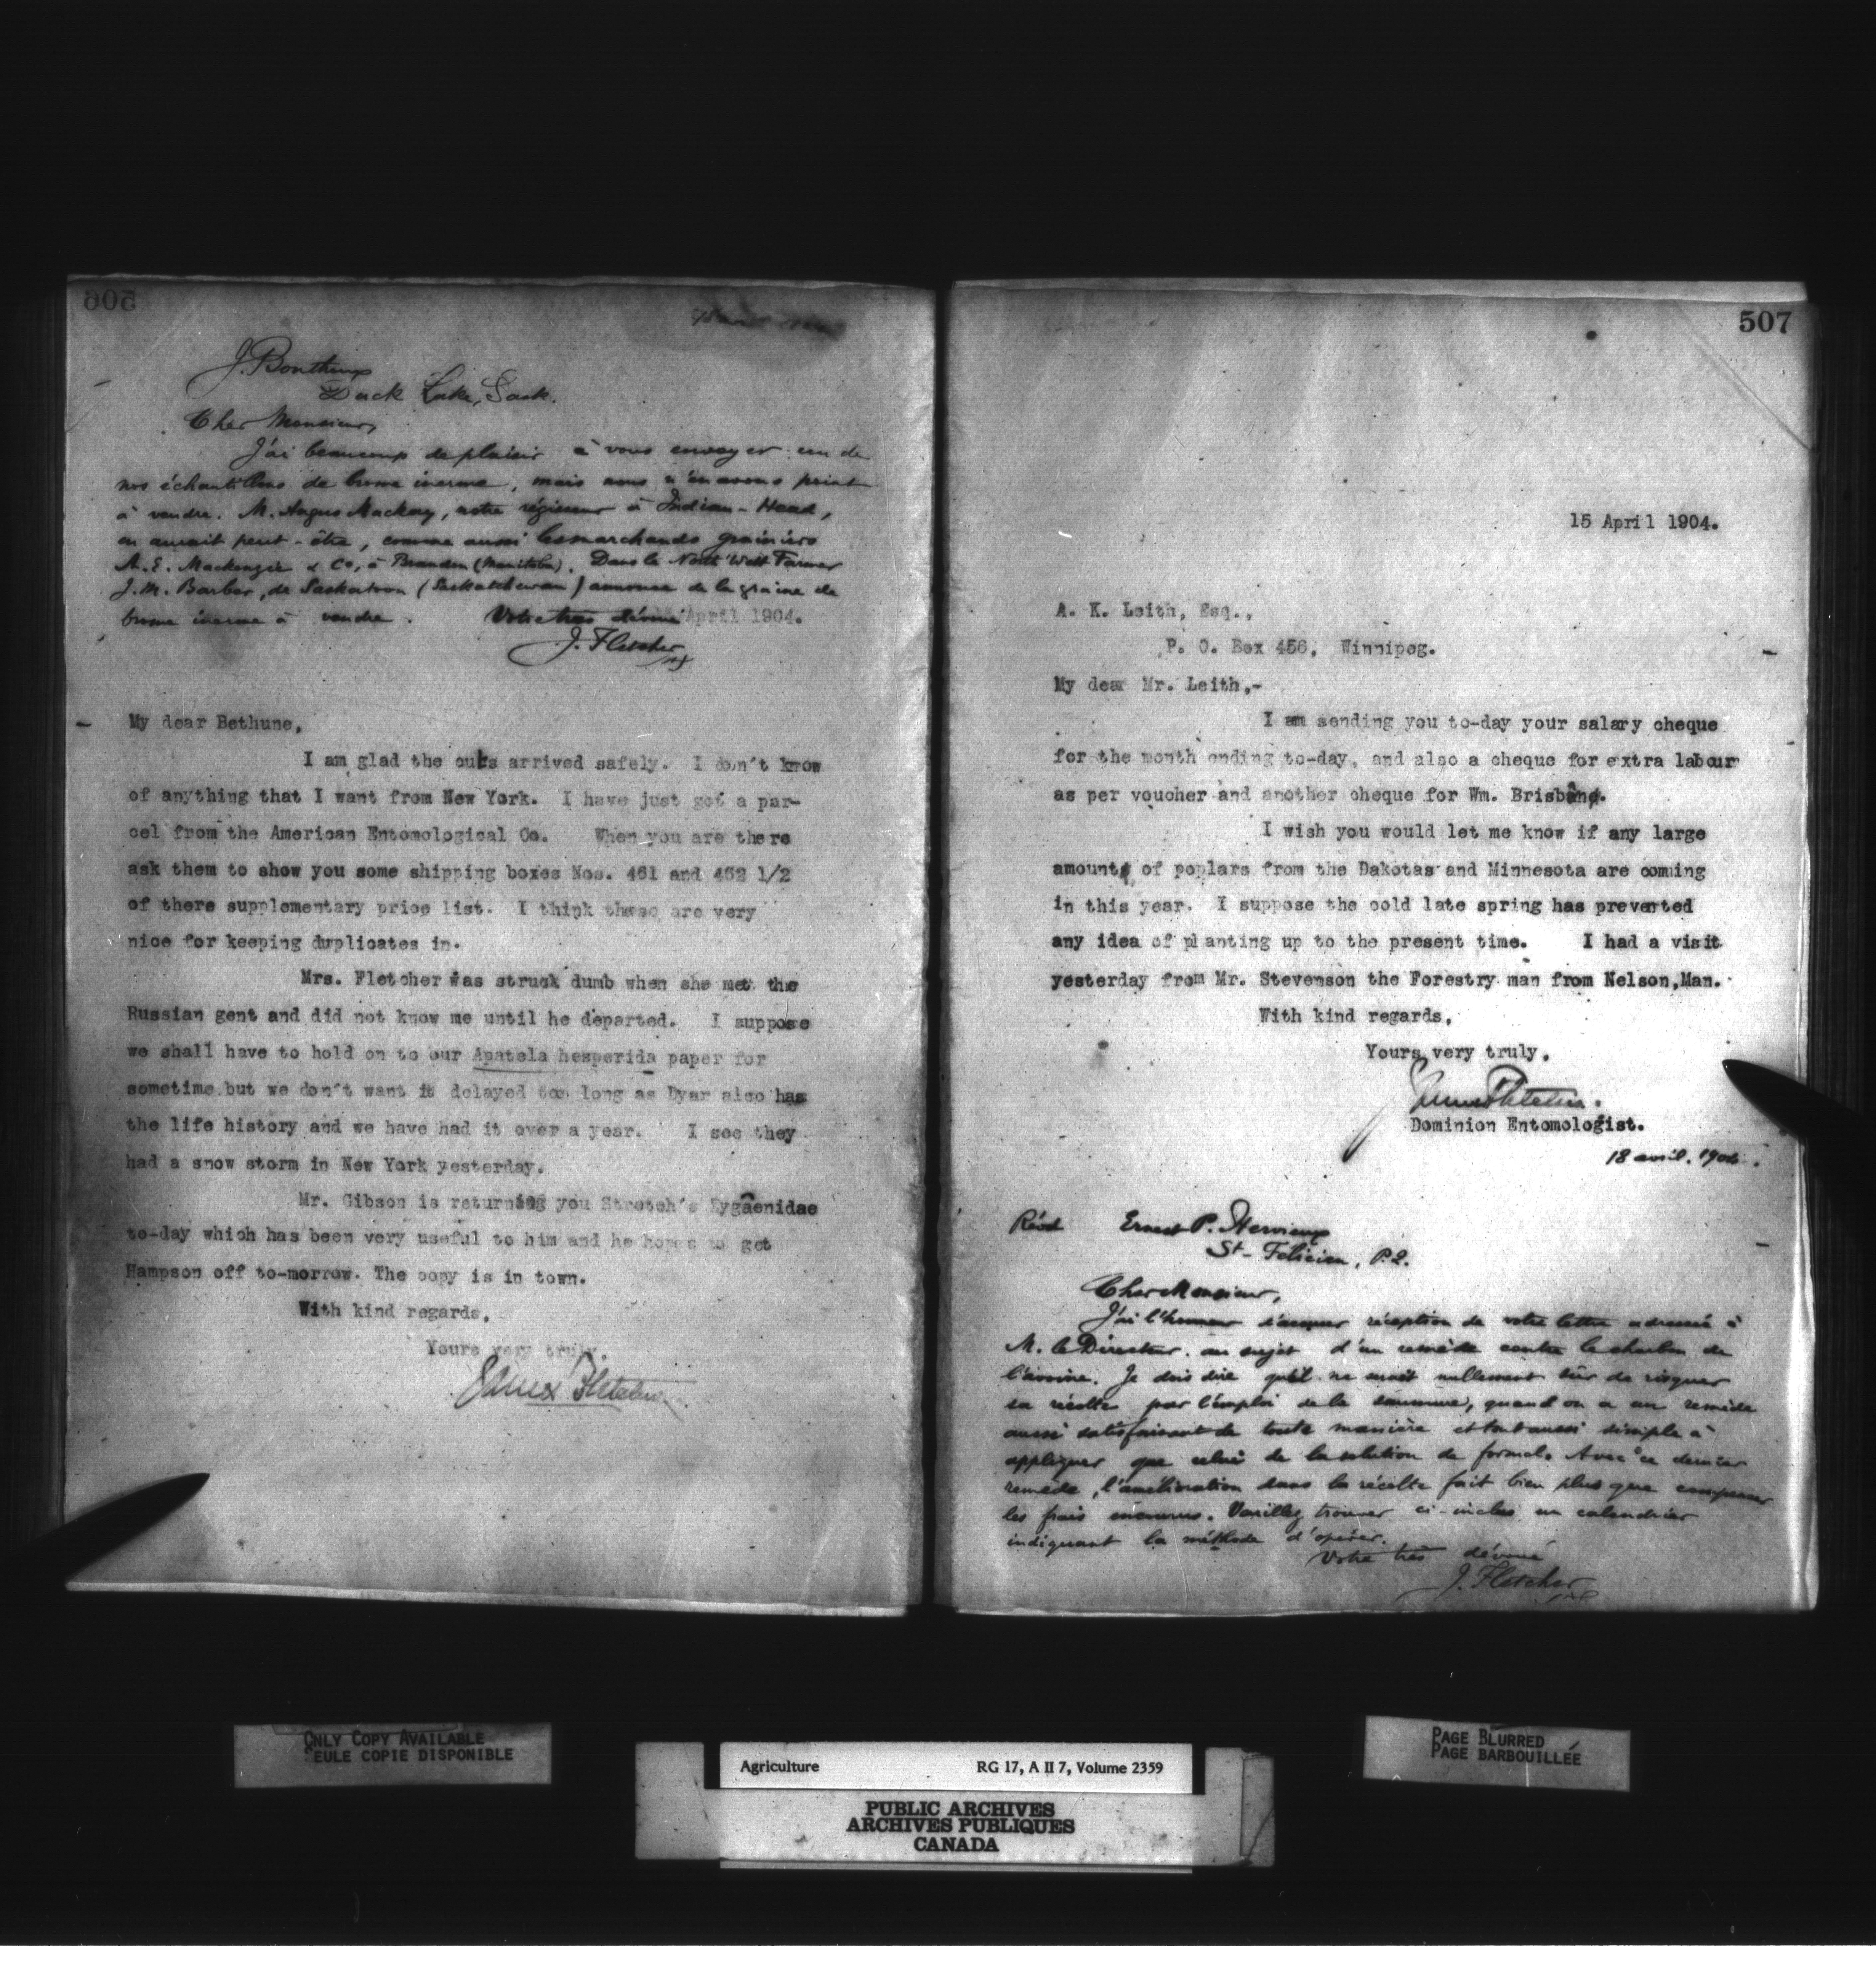 506
J. Bonthoux
Duck Lake, Sask.
Cher Monsieur,
J'ai beaucoup de plaisir à vous envoyer un de
nos échantillons de brome inerme, mais nous n'en avons point
à vendre. M. Angus Mackay, notre régisseur à Indian-Head,
en aurait peut-être, comme aussi les marchands grainiers
A. E. Mackenzie & Co, à Brandon (Manitoba). Dans le North West Farmer
J. M. Barber, de Saskatoon (Saskatchewan) annonce de la graine de
brome inerme à vendre. Votre très dévoué
April 1904.
J. Fletcher
My dear Bethune,
I am glad the cuts arrived safely. I don't know
of anything that I want from New York. I have just got a par-
cel from the American Entomological Co. When you are there
ask them to show you some shipping boxes Nos. 461 and 462 1/2
of there supplementary price list. I think these are very
nice for keeping duplicates in.
Mrs. Fletcher was struck dumb when she met the
Russian gent and did not know me until he departed. I suppose
we shall have to hold on to our Apatela hesperida paper for
sometime but we don't want it delayed too long as Dyar also has
the life history and we have had it over a year. I see they
had a snow storm in New York yesterday.
Mr. Gibson is returning you Stretch's Zygaenidae
to-day which has been very useful to him and he hopes to get
Hampson off to-morrow. The copy is in town.
With kind regards,
Yours very truly,
James Fletcher
507
15 April 1904.
A. K. Leith, Esq.,
P. O. Box 456, Winnipeg.
My dear Mr. Leith,-
I am sending you to-day your salary cheque
for the month ending to-day, and also a cheque for extra labour
as per voucher and another cheque for Wm. Brisbin.
I wish you would let me know if any large
amount of poplars from the Dakotas and Minnesota are coming
in this year. I suppose the cold late spring has prevented
any idea of planting up to the present time. I had a visit
yesterday from Mr. Stevenson the Forestry man from Nelson,Man.
With kind regards,
Yours very truly,
James Fletcher.
Dominion Entomologist.
18 avril. 1904.
Ernest P. Hervieux
St-Felicien, P.Q.
Cher Monsieur,
J'ai l'honneur d'accuser réception de votre lettre adressée à
M. le Directeur au sujet d'un remède contre le charbon de
l'avoine. Je dois dire qu'il ne serait nullement sûr de risquer
sa récolte par l'emploi de la saumure, quand on a un remède
aussi satisfaisant de toute manière et tout aussi simple à
appliquer que celui de la solution de formol. Avec ce dernier
remède, l'amélioration dans la récolte fait bien plus que compenser
les frais encourus. Veuillez trouver ci-inclus un calendrier
indiquant la méthode d'opérer.
Votre très dévoué
J. Fletcher
ONLY COPY AVAILABLE
SEULE COPIE DISPONIBLE
Agriculture RG 17, A II 7, Volume 2359
PUBLIC ARCHIVES
ARCHIVES PUBLIQUES
CANADA
PAGE BLURRED
PAGE BARBOUILLÉE